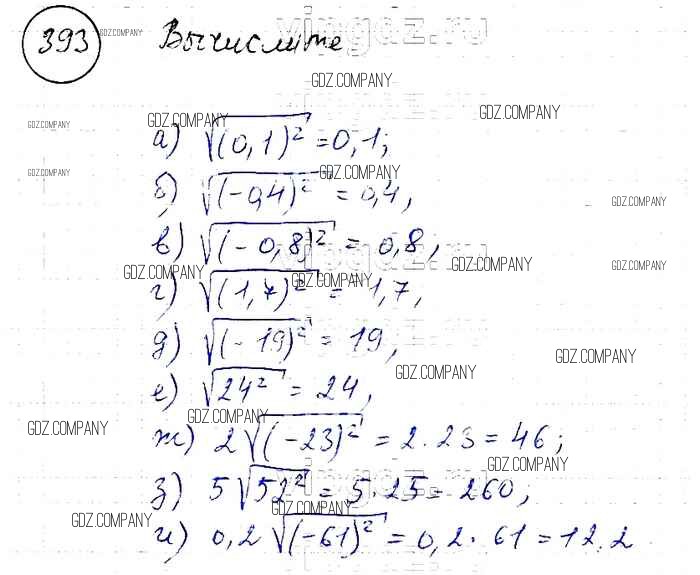 393 GDZ.COMPANY Вычислите
vipgdz.ru
GDZ.COMPANY
GDZ.COMPANY
GDZ.COMPANY GDZ.COMPANY
а) √(0,1)² = 0,1;
GDZ.COMPANY GDZ.COMPANY
б) √(-0,4)² = 0,4,
GDZ.COMPANY
в) √(-0,8)² = 0,8,
vipgdz.ru
GDZ.COMPANY GDZ.COMPANY GDZ.COMPANY GDZ.COMPANY
г) √(1,7)² = 1,7,
vipgdz.ru
д) √(-19)² = 19,
GDZ.COMPANY
GDZ.COMPANY
е) √24² = 24,
GDZ.COMPANY
GDZ.COMPANY
ж) 2√(-23)² = 2·23 = 46;
GDZ.COMPANY
vipgdz.ru
з) 5√52² = 5·25 = 260,
GDZ.COMPANY
GDZ.COMPANY
и) 0,2√(-61)² = 0,2·61 = 12,2